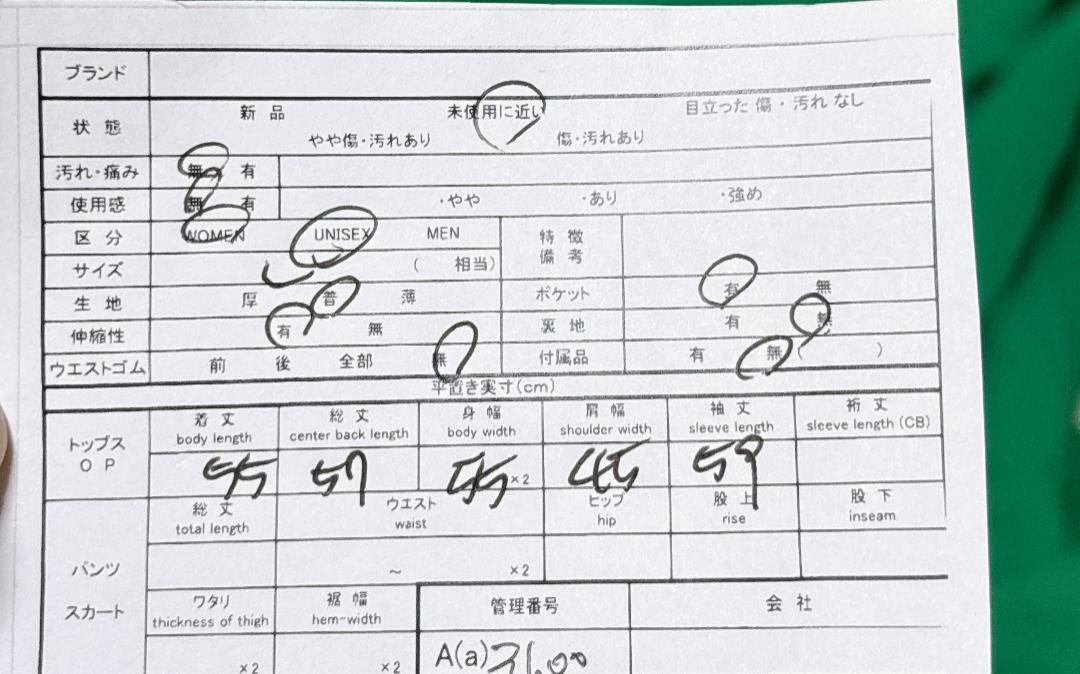 ブランド
状態 新品 未使用に近い 目立った傷・汚れなし
やや傷・汚れあり 傷・汚れあり
汚れ・痛み 無 有
使用感 無 有 ・やや ・あり ・強め
区分 WOMEN UNISEX MEN 特徴
備考
サイズ L (相当)
生地 厚 普 薄 ポケット 有 無
伸縮性 有 無 裏地 有 無
ウエストゴム 前 後 全部 無 付属品 有 無( )
平置き実寸(cm)
トップス
OP
着丈 総丈 身幅 肩幅 袖丈 裄丈
body length center back length body width shoulder width sleeve length sleeve length (CB)
55 57 55 ×2 45 59
総丈 ウエスト ヒップ 股上 股下
total length waist hip rise inseam
パンツ ~ ×2
スカート
ワタリ 裾幅 管理番号 会社
thickness of thigh hem-width
×2 ×2 A(a)